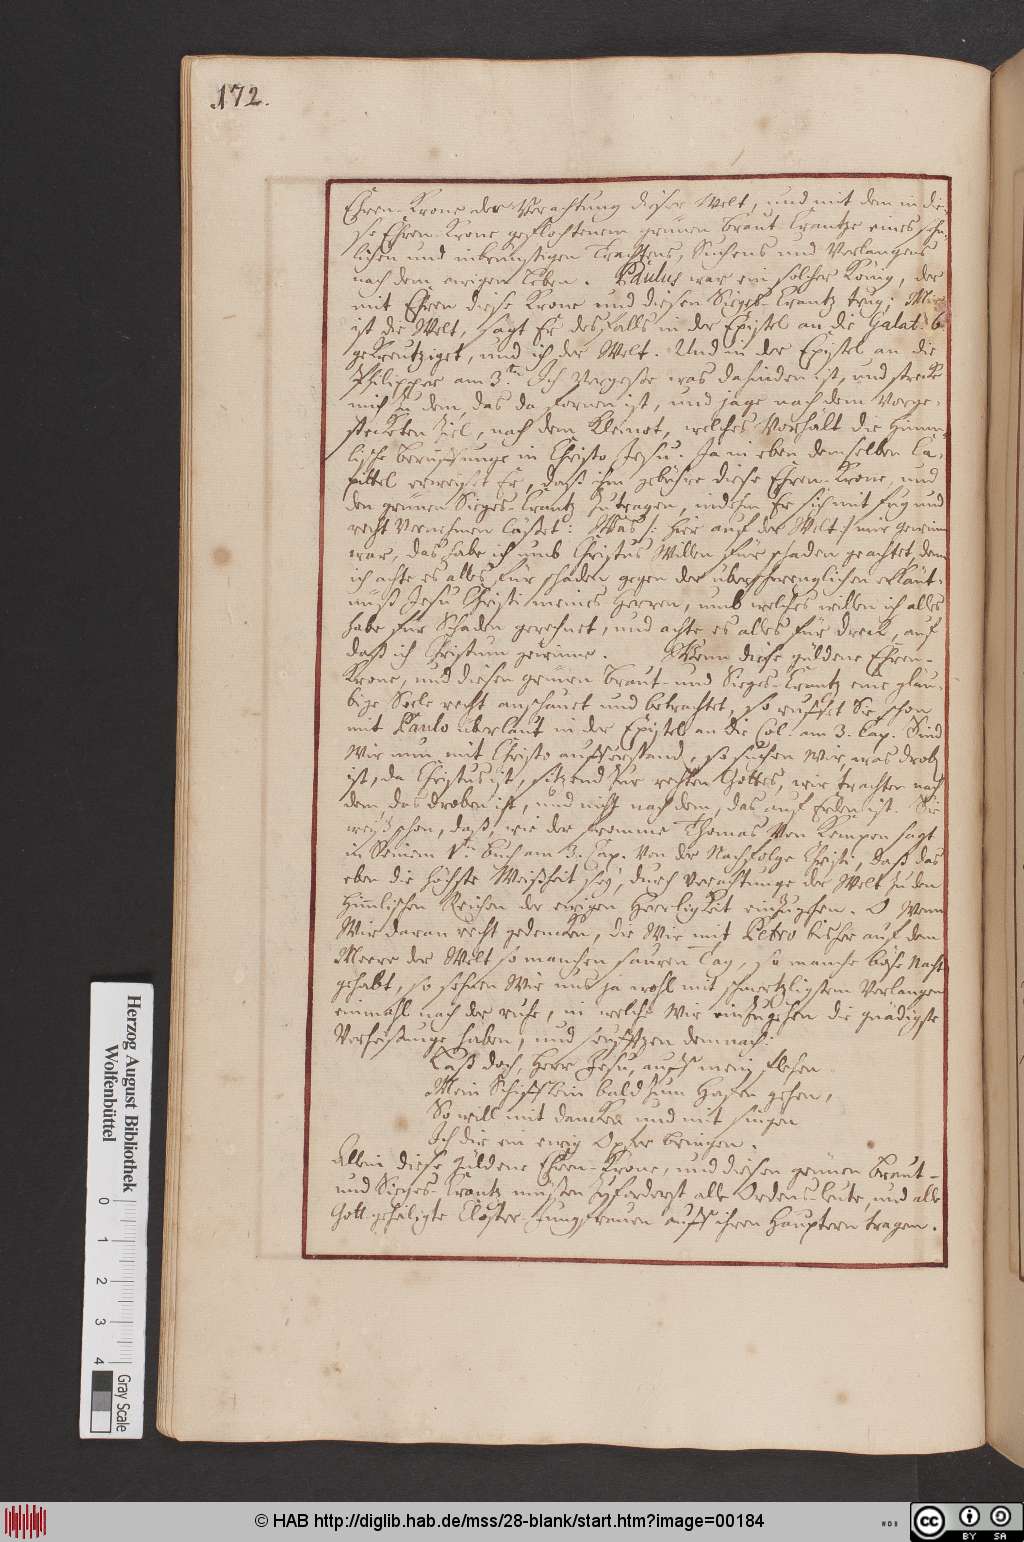 172.
Ehren-Krone der Verachtung dieser Welt, und mit dem in die-
se Ehren-Krone geflochtenem grünen Braut-Crantze eines sehn-
lichen und inbrünstigen Trachtens, Suchens und Verlangens
nach dem ewigen Leben. Paulus war ein solcher König, der
mit Ehren diese Krone und diesen Sieges-Crantz trug; Mir
ist die Welt, sagt Er desfalls in der Epistel an die Galat. 6
gekreutziget, und ich der Welt. Und in der Epistel an die
Philipper am 3. Ich vergesse was dahinden ist, und strecke
mich zu dem, das da fornen ist, und jage nach dem Vorge-
steckten Ziel, nach dem Kleinot, welches Vorhält die Himm-
lische Beruffunge in Christo Jesu. Ja in eben demselben Ca-
pittel erweist Er, daß ihm gebühre diese Ehren-Krone, und
den grünen Sieges-Crantz zu tragen, indehm Er sich mit fug und
recht Vernehmen lässet: Was /: hier auf der Welt :/ mir gewinn
war, das habe ich umb Christus Willen für schaden geachtet, denn
ich achte es alles für schaden gegen der überschwenglichen erkänt-
nüß Jesu Christi meines Herren, umb welches willen ich alles
habe für Schaden gerechnet, und achte es alles für dreck, auf
daß ich Christum gewinne. Wenn diese güldene Ehren-
Krone, und diesen grünen Braut- und Sieges-Crantz eine gläu-
bige Seele recht anschauet und betrachtet, so ruffet Sie schon
mit Paulo überlaut in der Epistel an die Col. am 3. Cap. Sind
wir nun mit Christo aufferstand, so suchen wir, was drob
ist, da Christus ist, sitzend zur rechten Gottes, wir trachten nach
dem das droben ist, und nicht nach dem, das auf Erden ist. Sie
weiß schon, daß, wie der fromme Thomas Von Kempen sagt
in Seinem 1. Buch am 3. Cap. Von der Nachfolge Christi, daß das
eben die höchste Weißheit sey, durch Verachtunge der Welt zu den
Himlischen Reichen der ewigen Herrligkeit einzugehen. O Wenn
Wir daran recht gedencken, die Wir mit Petro bisher auf dem
Meere der Welt so manchen sauren Tag, so manche böse Nacht
gehabt, so sehnen Wir uns ja wohl mit schmertzligstem Verlangen
einmahl nach der ruhe, in welche Wir einzugehen die gnädigste
Verheißunge haben, und seufftzen demnach:
Laß doch, Herr Jesu, auff mein flehen
Mein Schifflein bald zum Hafen gehen,
So will mit dancken und mit singen
Ich dir ein ewig Opfer bringen.
Allein diese güldene Ehren-Krone, und diesen grünen Braut-
und Sieges-Crantz müssen zuforderst alle Ordensleute, und alle
Gott geheiligte Closter-Jungfrauen auff ihren Häuptern tragen.
Herzog August Bibliothek
Wolfenbüttel
0 1 2 3 4
Gray Scale
© HAB http://diglib.hab.de/mss/28-blank/start.htm?image=00184
WDB
cc BY SA